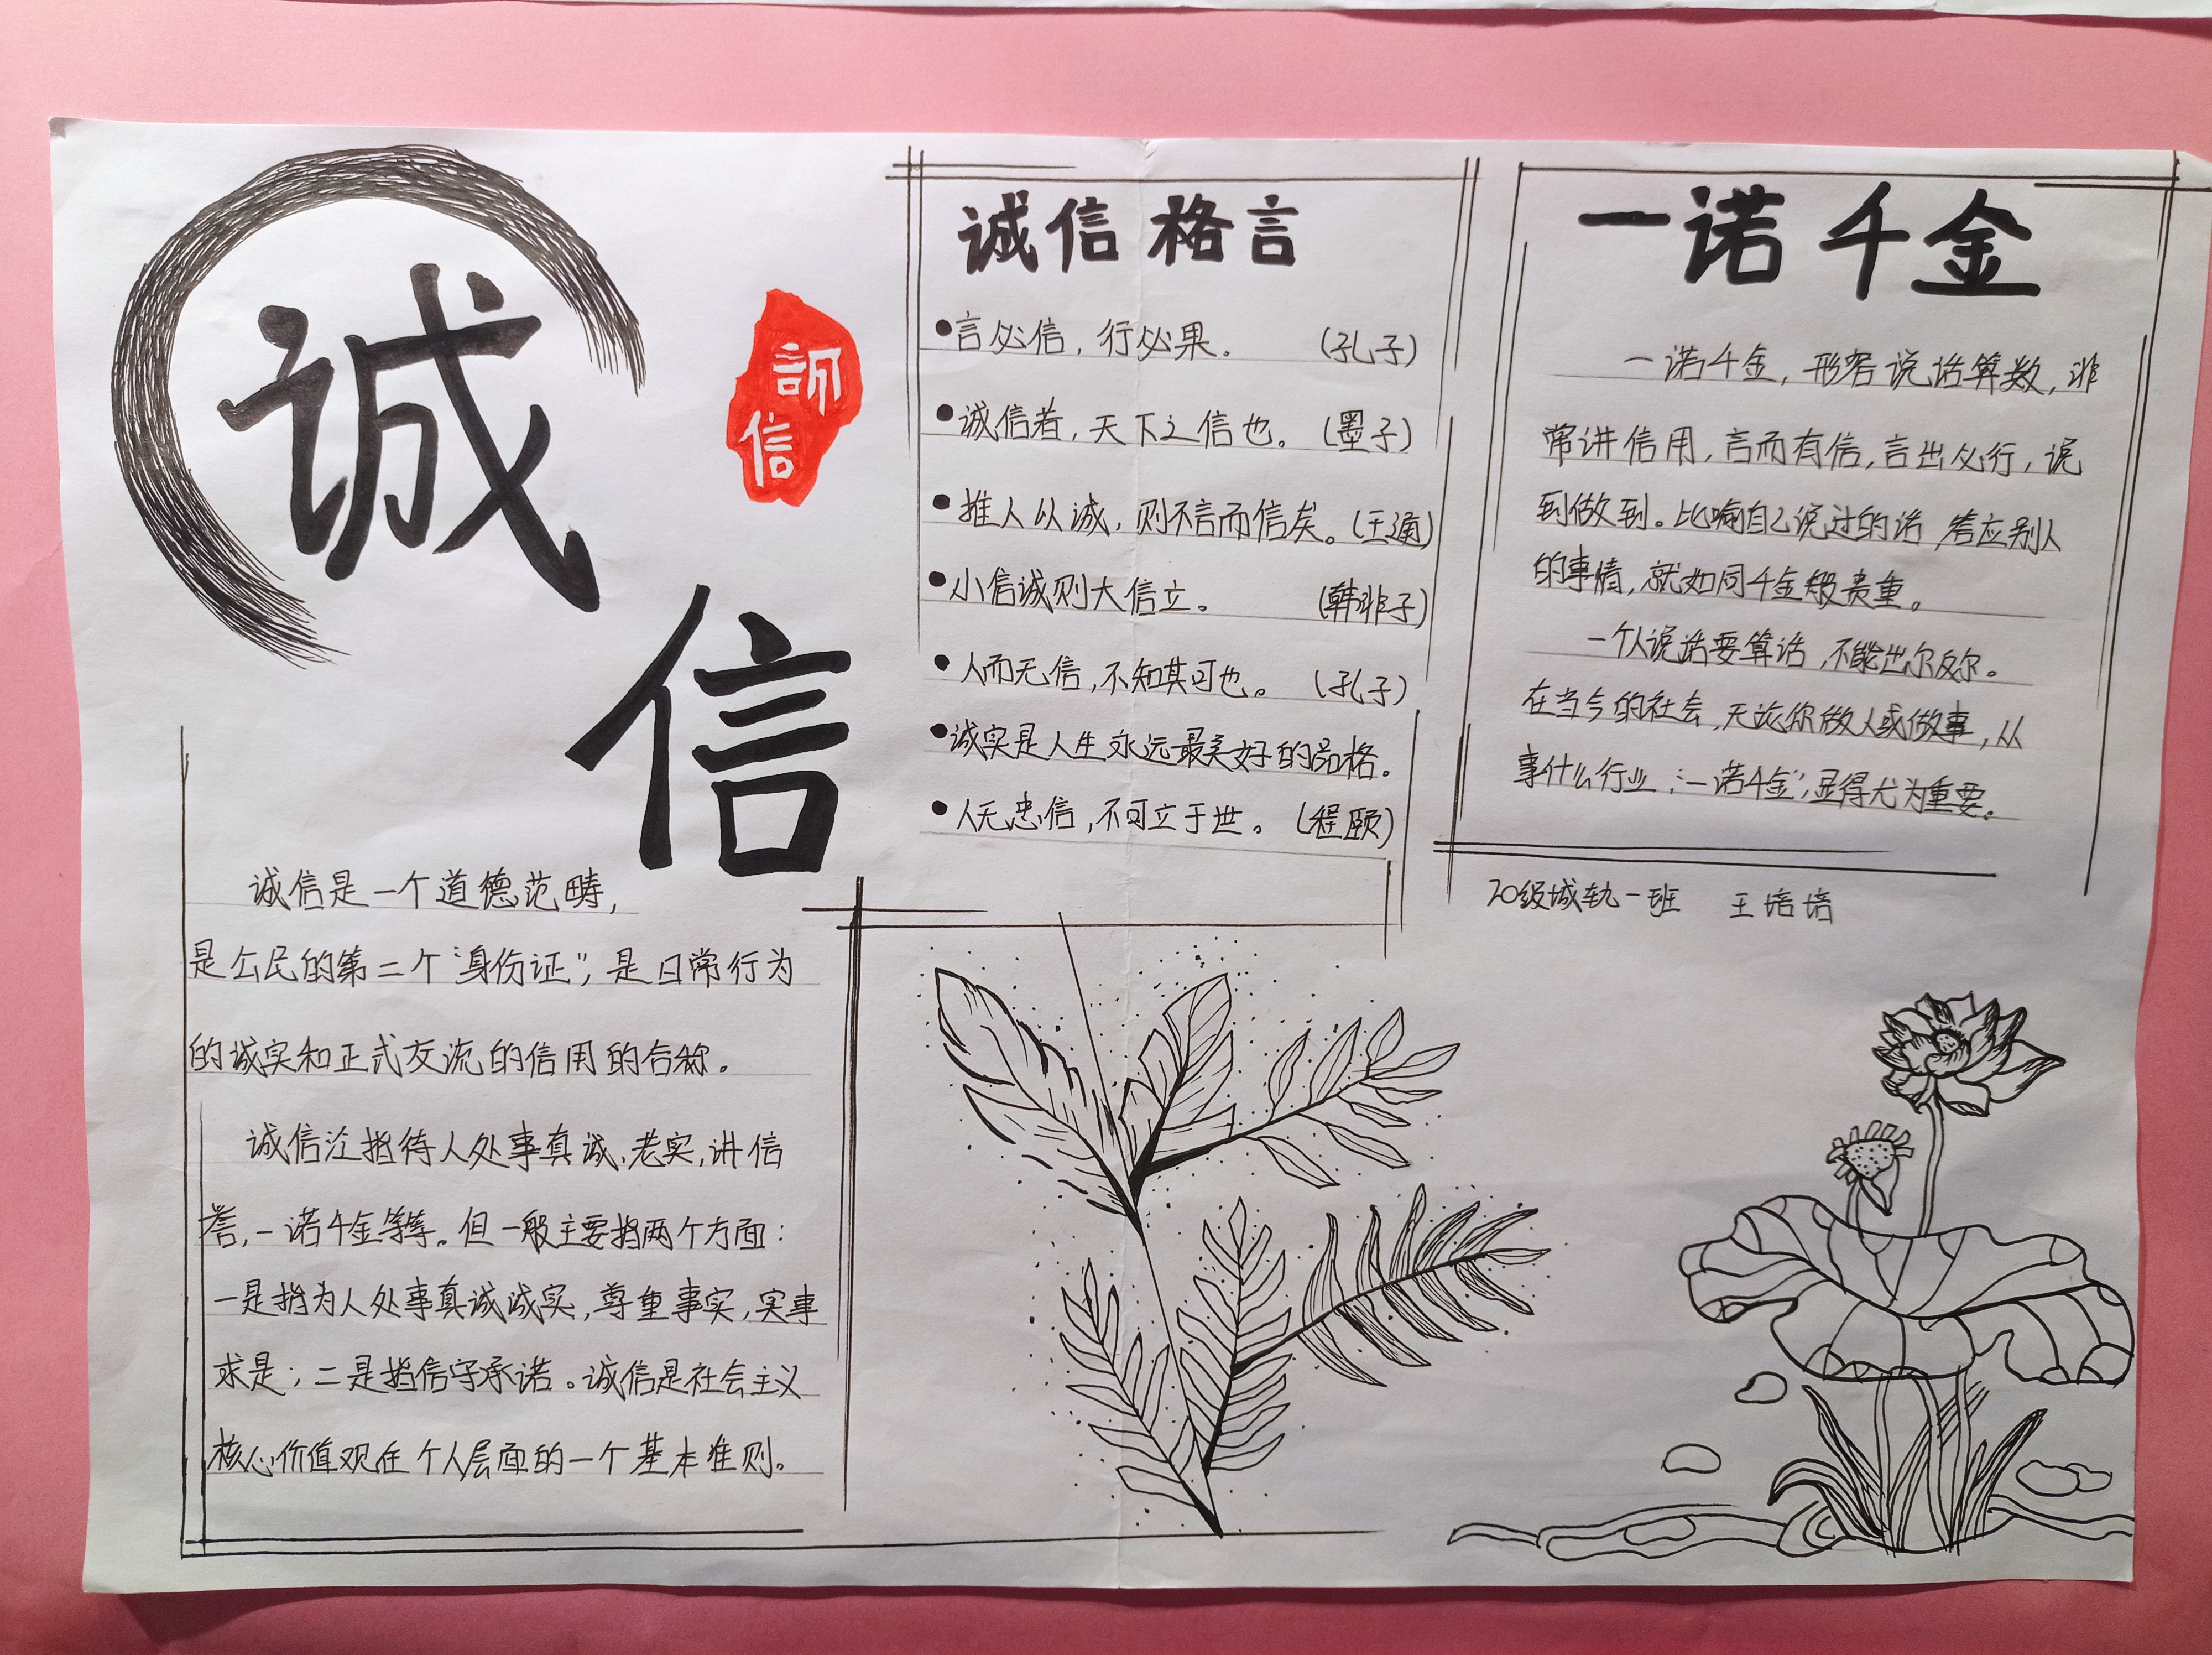 诚
信
信
诚信是一个道德范畴,
是公民的第二个“身份证”,是日常行为
的诚实和正式交流的信用的合称。
诚信泛指待人处事真诚、老实,讲信
誉,一诺千金等等。但一般主要指两个方面:
一是指为人处事真诚诚实,尊重事实,实事
求是;二是指信守承诺。诚信是社会主义
核心价值观在个人层面的一个基本准则。
诚信格言
●言必信,行必果。 (孔子)
●诚信者,天下之信也。(墨子)
●推人以诚,则不言而信矣。(王通)
●小信诚则大信立。 (韩非子)
●人而无信,不知其可也。 (孔子)
●诚实是人生永远最美好的品格。
●人无忠信,不可立于世。(程颐)
一诺千金
一诺千金,形容说话算数,非
常讲信用,言而有信,言出必行,说
到做到。比喻自己说过的话,答应别人
的事情,就如同千金般贵重。
一个人说话要算话,不能出尔反尔。
在当今的社会,无论你做人或做事,从
事什么行业,“一诺千金”,显得尤为重要。
20级城轨一班 王培培